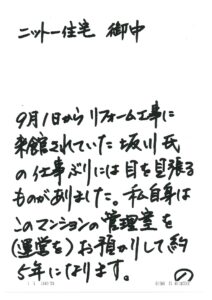 ニットー住宅 御中
9月1日からリフォーム工事に
来館されていた坂川氏
の仕事ぶりには目を見張る
ものがありました。私自身は
このマンションの管理室を
(運営を)お預かりして約
5年になります。
の